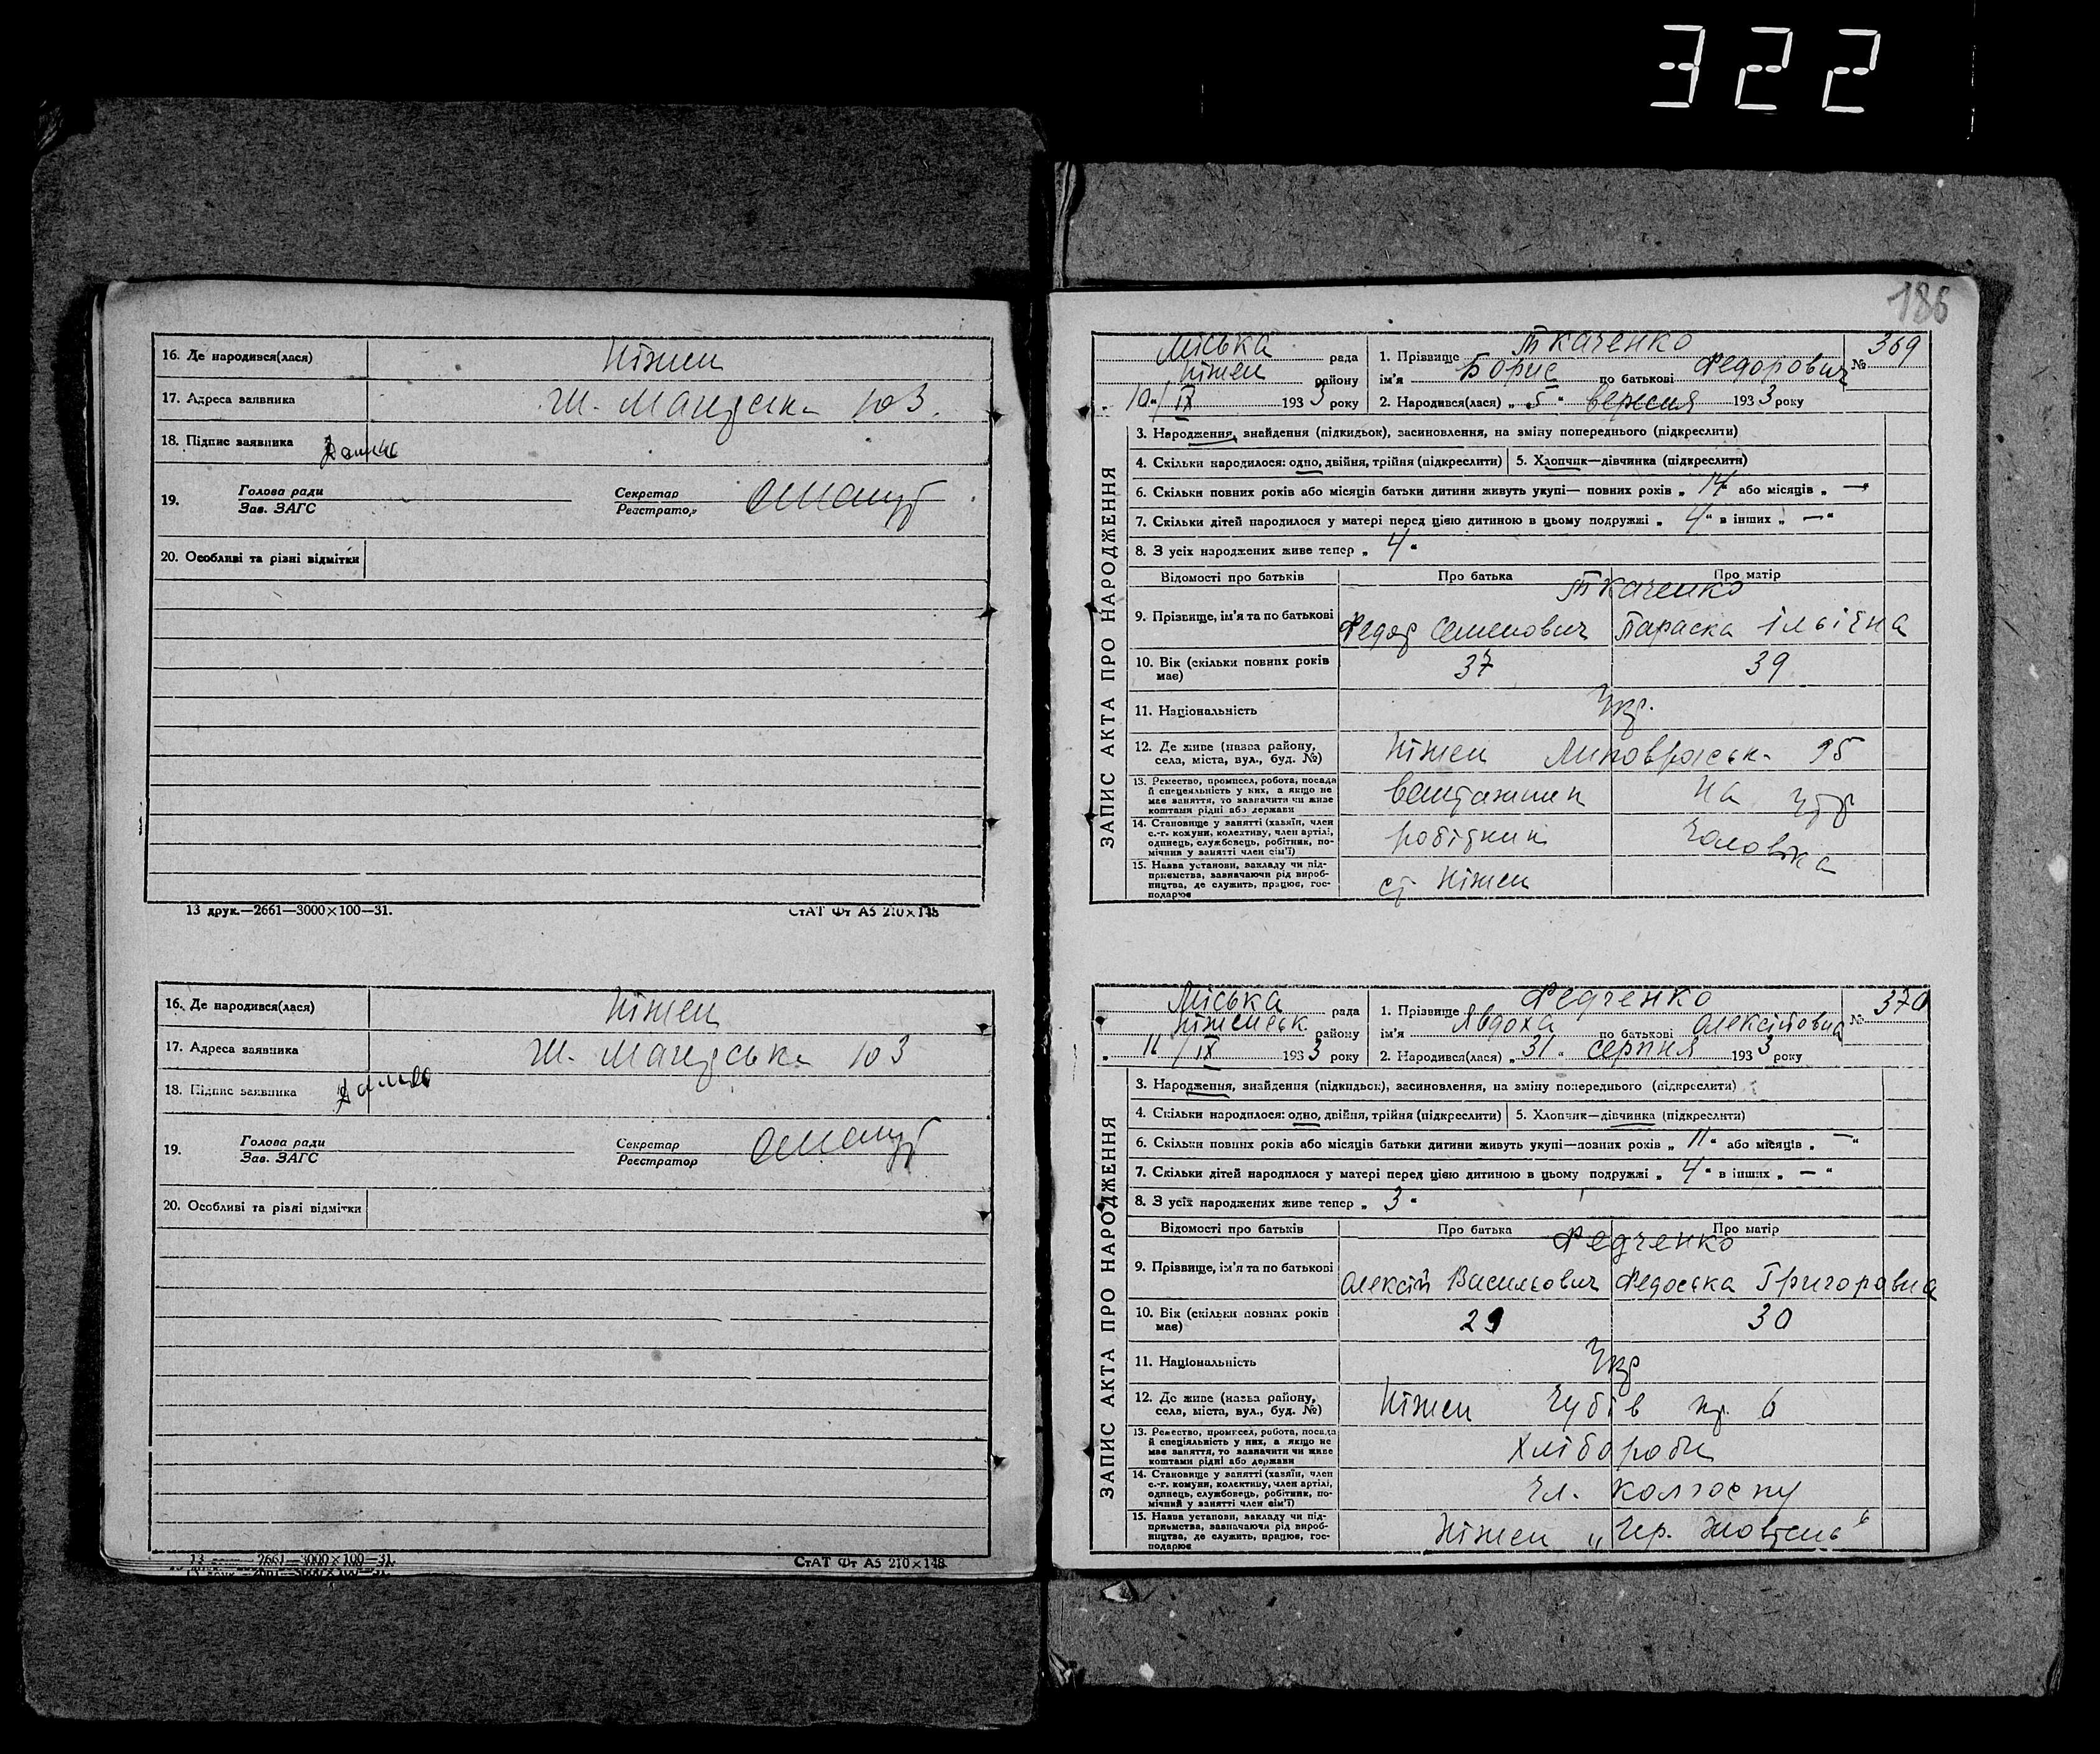 322
16. Де народився(лася) Ніжен
17. Адреса заявника 103
18. Підпис заявника
19. Голова ради Секретар
Зав. ЗАГС Реєстратор
20. Особливі та різні відмітки
13 друк.—2661—3000×100—31. СтАТ Фт А5 210×148
16. Де народився(лася) Ніжен
17. Адреса заявника 103
18. Підпис заявника
19. Голова ради Секретар
Зав. ЗАГС Реєстратор
20. Особливі та різні відмітки
2661—3000×100—31. СтАТ Фт А5 210×148
186
ЗАПИС АКТА ПРО НАРОДЖЕННЯ
Міська рада 1. Прізвище Ткаченко № 369
Ніжен району ім'я Борис по батькові Федорович
„10“/IX 1933 року 2. Народився(лася) „5“ вересня 1933 року
3. Народження, знайдення (підкидьок), засиновлення, на зміну попереднього (підкреслити)
4. Скільки народилося: одно, двійня, трійня (підкреслити) 5. Хлопчик—дівчинка (підкреслити)
6. Скільки повних років або місяців батьки дитини живуть укупі— повних років „14“ або місяців „—“
7. Скільки дітей народилося у матері перед цією дитиною в цьому подружжі „4“ в інших „—“
8. З усіх народжених живе тепер „4“
Відомості про батьків Про батька Про матір
Ткаченко
9. Прізвище, ім'я та по батькові Федор Семенович Параска Ільїчна
10. Вік (скільки повних років має) 37 39
11. Національність Укр.
12. Де живе (назва району, села, міста, вул., буд. №) Ніжен 95
13. Ремество, промисел, робота, посада й спеціяльність у них, а якщо не має заняття, то зазначити чи живе коштами рідні або держави вантажник на утр
14. Становище у занятті (хазяїн, член с.-г. комуни, колективу, член артілі, одинець, службовець, робітник, помічний у занятті член сім'ї) робітник чоловіка
15. Назва установи, закладу чи підприємства, зазначаючи рід виробництва, де служить, працює, господарює ст. Ніжен
ЗАПИС АКТА ПРО НАРОДЖЕННЯ
Міська рада 1. Прізвище Федченко № 370
Ніженськ. району ім'я Явдоха по батькові Олексіївна
„11/IX 1933 року 2. Народився(лася) „31“ серпня 1933 року
3. Народження, знайдення (підкидьок), засиновлення, на зміну попереднього (підкреслити)
4. Скільки народилося: одно, двійня, трійня (підкреслити) 5. Хлопчик—дівчинка (підкреслити)
6. Скільки повних років або місяців батьки дитини живуть укупі—повних років „11“ або місяців „—“
7. Скільки дітей народилося у матері перед цією дитиною в цьому подружжі „4“ в інших „—“
8. З усіх народжених живе тепер „3“
Відомості про батьків Про батька Про матір
Федченко
9. Прізвище, ім'я та по батькові Олексій Васильович Федоська Григоровна
10. Вік (скільки повних років має) 29 30
11. Національність Укр
12. Де живе (назва району, села, міста, вул., буд. №) Ніжен Чубів пр. 6
13. Ремество, промисел, робота, посада й спеціяльність у них, а якщо не має заняття, то зазначити чи живе коштами рідні або держави Хлібороби
14. Становище у занятті (хазяїн, член с.-г. комуни, колективу, член артілі, одинець, службовець, робітник, помічний у занятті член сім'ї) Чл. колгоспу
15. Назва установи, закладу чи підприємства, зазначаючи рід виробництва, де служить, працює, господарює Ніжен „Чер. Жовтень“